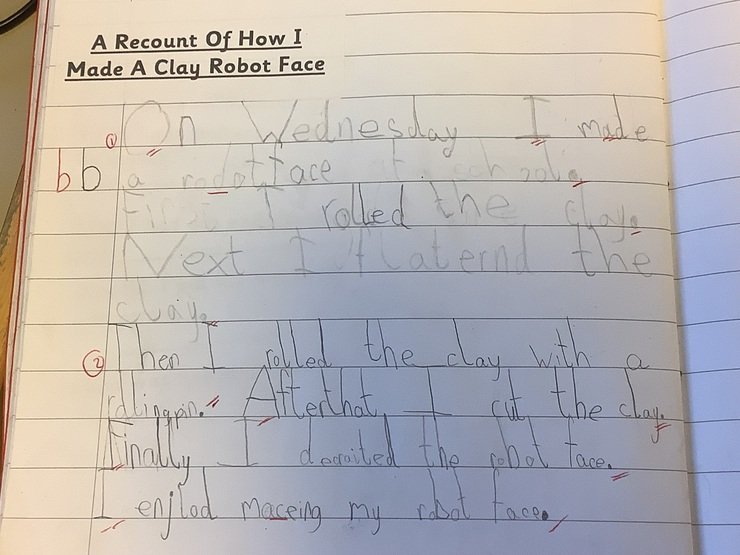 A Recount Of How I
Made A Clay Robot Face
① On Wednesday I made
bb a rodot face at school.
First I rolled the clay.
Next I flaternd the
clay.
② Then I rolled the clay with a
rolingpin. Afterthat I cut the clay.
Finally I decraited the robot face.
I enjlod maceing my robot face.